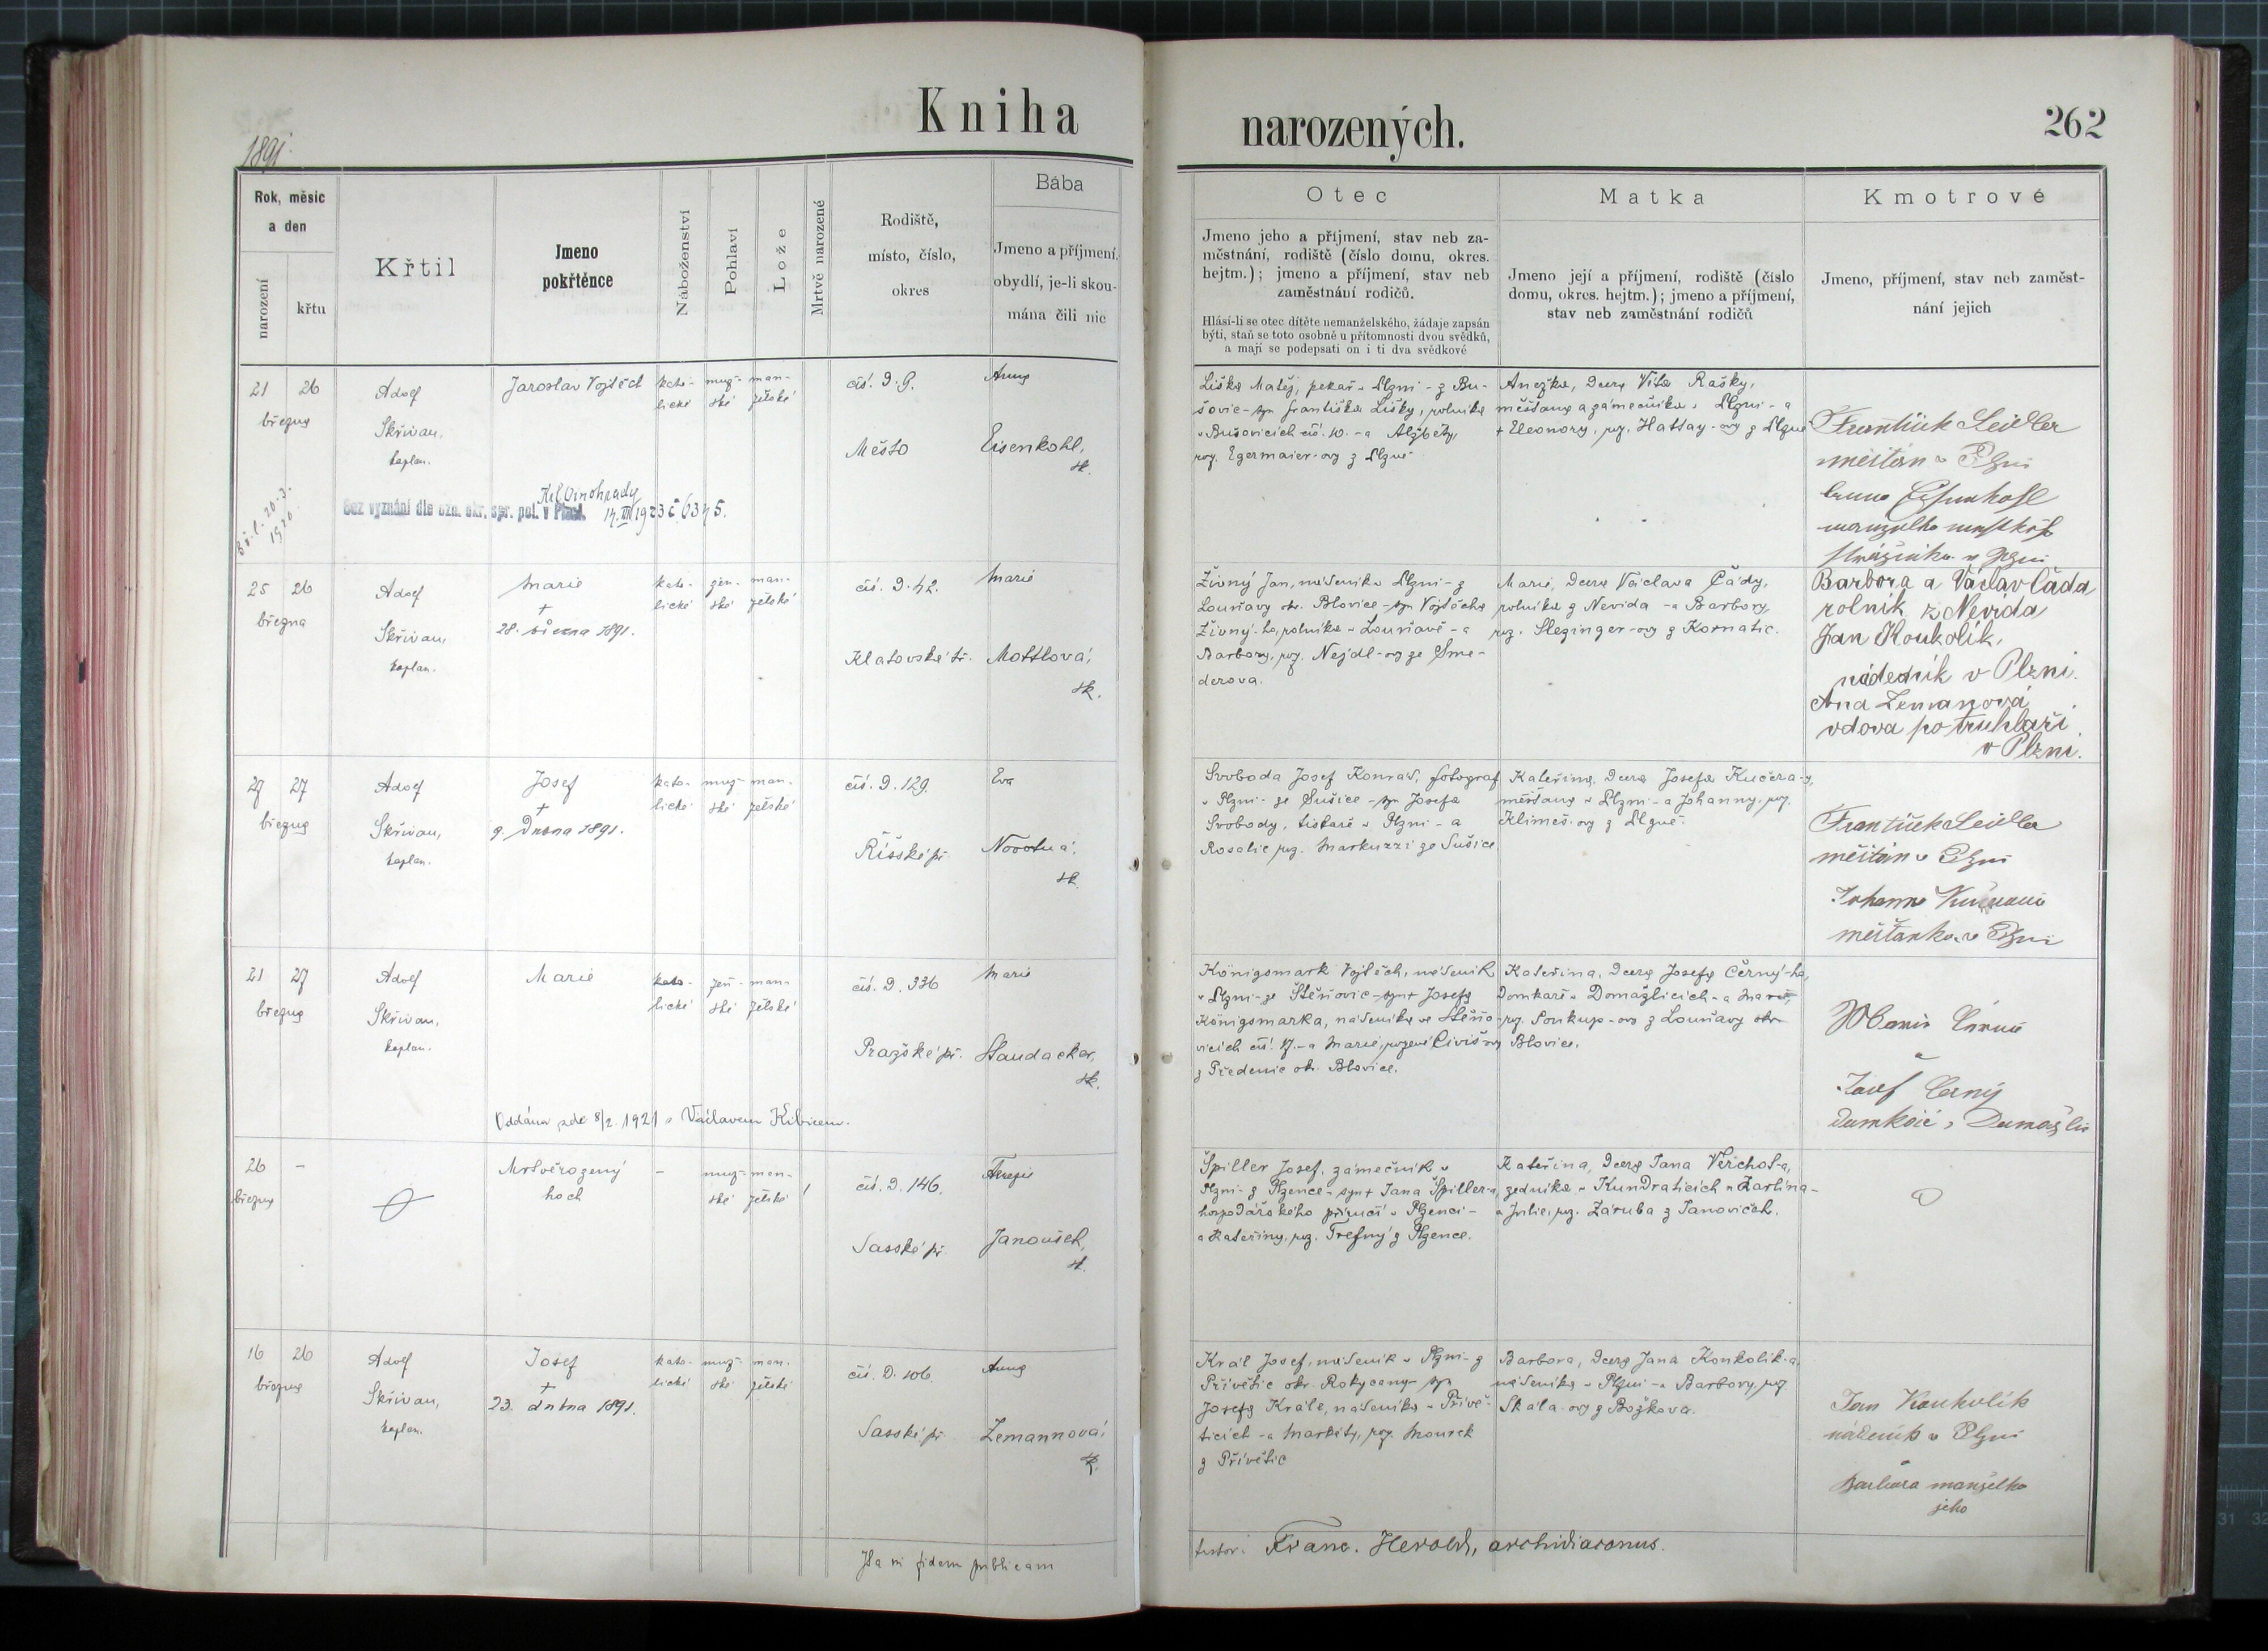 Kniha
narozených.
262
1891.
Rok, měsíc
a den
narození
křtu
Křtil
Jmeno
pokřtěnce
Náboženství
Pohlaví
Lože
Mrtvě narozené
Rodiště,
místo, číslo,
okres
Bába
Jmeno a příjmení,
obydlí, je-li skou-
mána čili nic
Otec
Jmeno jeho a příjmení, stav neb za-
městnání, rodiště (číslo domu, okres.
hejtm.); jmeno a příjmení, stav neb
zaměstnání rodičů.
Hlásí-li se otec dítěte nemanželského, žádaje zapsán
býti, staň se toto osobně u přítomnosti dvou svědků,
a mají se podepsati on i ti dva svědkové
Matka
Jmeno její a příjmení, rodiště (číslo
domu, okres. hejtm.); jmeno a příjmení,
stav neb zaměstnání rodičů
Kmotrové
Jmeno, příjmení, stav neb zaměst-
nání jejich
21 26
března
Adolf
Skřivan,
kaplan.
Jaroslav Vojtěch
kato-
lické
muž-
ské
man-
želské
čís. D. 9.
Město
Anna
Eisenkohl,
sk.
Kr. Vinohrady
Bez vyznání dle ozn. okr. spr. pol. v 14. III 1923 č. 6345.
Liška Matěj, pekař v Plzni - z Bu-
šovic - syn Františka Lišky, rolníka
v Bušovicích čís. 10. - a Alžběty,
roz. Egermaier-ovy z Plzně
Anežka, dcera Víta Rašky,
měšťana a zámečníka v Plzni - a
+ Eleonory, roz. Hattay-ovy z Plzně
František Seidler
měšťan v Plzni
manželka
strážníka v Plzni
25 26
března
Adolf
Skřivan,
kaplan.
Marie
+
28. března 1891.
kato-
lické
žen-
ské
man-
želské
čís. D. 42.
Klatovské tř.
Marie
Mottlová,
sk.
Živný Jan, nádeník v Plzni - z
Louňavy okr. Blovice - syn Vojtěcha
Živný-ho, rolníka v Louňavě - a
Barbory, roz. Nejdl-ovy ze Sme-
derova.
Marie, dcera Václava Čády,
rolníka z Nevida - a Barbory,
roz. Slezinger-ovy z Kornatic.
Barbora a Václav Čada
rolník z Nevida
Jan Koukolík,
nádeník v Plzni.
Ana Zemanová
vdova po truhlaři
v Plzni.
27 27
března
Adolf
Skřivan,
kaplan.
Josef
+
9. dubna 1891.
kato-
lické
muž-
ské
man-
želské
čís. D. 129.
Říšské př.
Eva
Novotná,
sk.
Svoboda Josef Konrad, fotograf
v Plzni - ze Sušice - syn Josefa
Svobody, tiskaře v Plzni - a
Rosalie roz. Markuzzi ze Sušice.
Kateřina, dcera Josefa Kučera-y,
měšťana v Plzni - a Johanny, roz.
Klimeš-ovy z Plzně.
František Seidler
měšťan v Plzni
Johanna
měšťanka v Plzni
21 27
března
Adolf
Skřivan,
kaplan.
Marie
kato-
lické
žen-
ské
man-
želské
čís. D. 336
Pražské př.
Marie
Staudacher,
sk.
Oddána zde 8/2. 1921 s Václavem Kubicem.
Königsmark Vojtěch, nádeník
v Plzni - ze Štěňovic - syn + Josefa
Königsmarka, nádeníka ve Štěňo-
vicích čís. 17. - a Marie, rozené Civiš-ovy
z Předenic ok. Blovice.
Kateřina, dcera Josefa Černý-ho,
Domkaře v Domažlicích - a Marie,
roz. Soukup-ovy z Louňavy okr.
Blovice.
Marie Černá
a
Josef Černý
26 -
března
Mrtvěrozený
hoch
-
muž-
ské
man-
želské
1
čís. D. 146.
Sasské př.
Terezie
Janoušek,
sk.
Špiller Josef, zámečník v
Plzni - z Plzence - syn + Jana Špiller-a,
hospodářského příručí v Plzenci -
a Kateřiny, roz. Trefný z Plzence.
Kateřina, dcera Jana Věrchot-a,
zedníka v Kundraticích u Žarlína -
a Julie, roz. Záruba z Janoviček.
16 26
března
Adolf
Skřivan,
kaplan.
Josef
+
23. dubna 1891.
kato-
lické
muž-
ské
man-
želské
čís. D. 106.
Sasské př.
Anna
Zemannová,
sk.
Král Josef, nádeník v Plzni - z
Přívětic okr. Rokycany - syn
Josefa Krále, nádeníka v Přívě-
ticích - a Markéty, roz. Mourek
z Přívětic
Barbora, dcera Jana Konkolík-a,
nádeníka v Plzni - a Barbory, roz.
Skála-ovy z Božkova.
Jan Koukolík
nádeník v Plzni
a
Barbora manželka
jeho
Ita in fidem publicam
testor: Franc. Herold, archidiaconus.